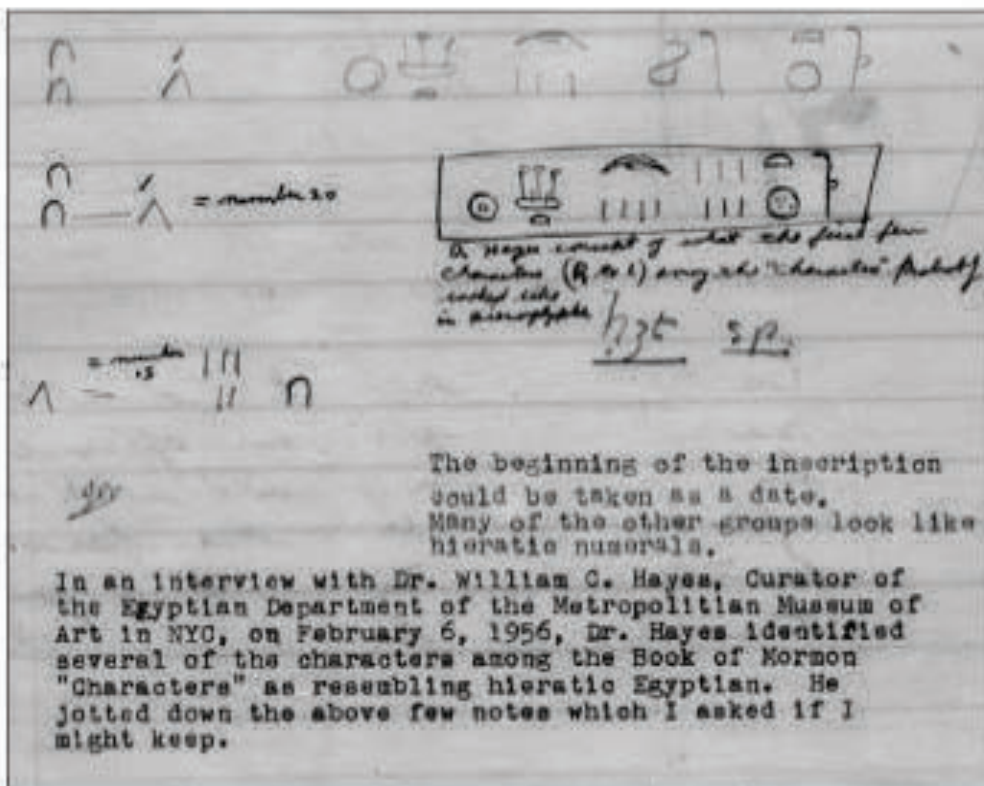 = number 20
of what the first few
characters (R to L) among the "characters" probably
looked like
in hieroglyphs
ḥ3t sp.
= number
15
The beginning of the inscription
could be taken as a date.
Many of the other groups look like
hieratic numerals.
In an interview with Dr. William C. Hayes, Curator of
the Egyptian Department of the Metropolitian Museum of
Art in NYC, on February 6, 1956, Dr. Hayes identified
several of the characters among the Book of Mormon
"Characters" as resembling hieratic Egyptian. He
jotted down the above few notes which I asked if I
might keep.